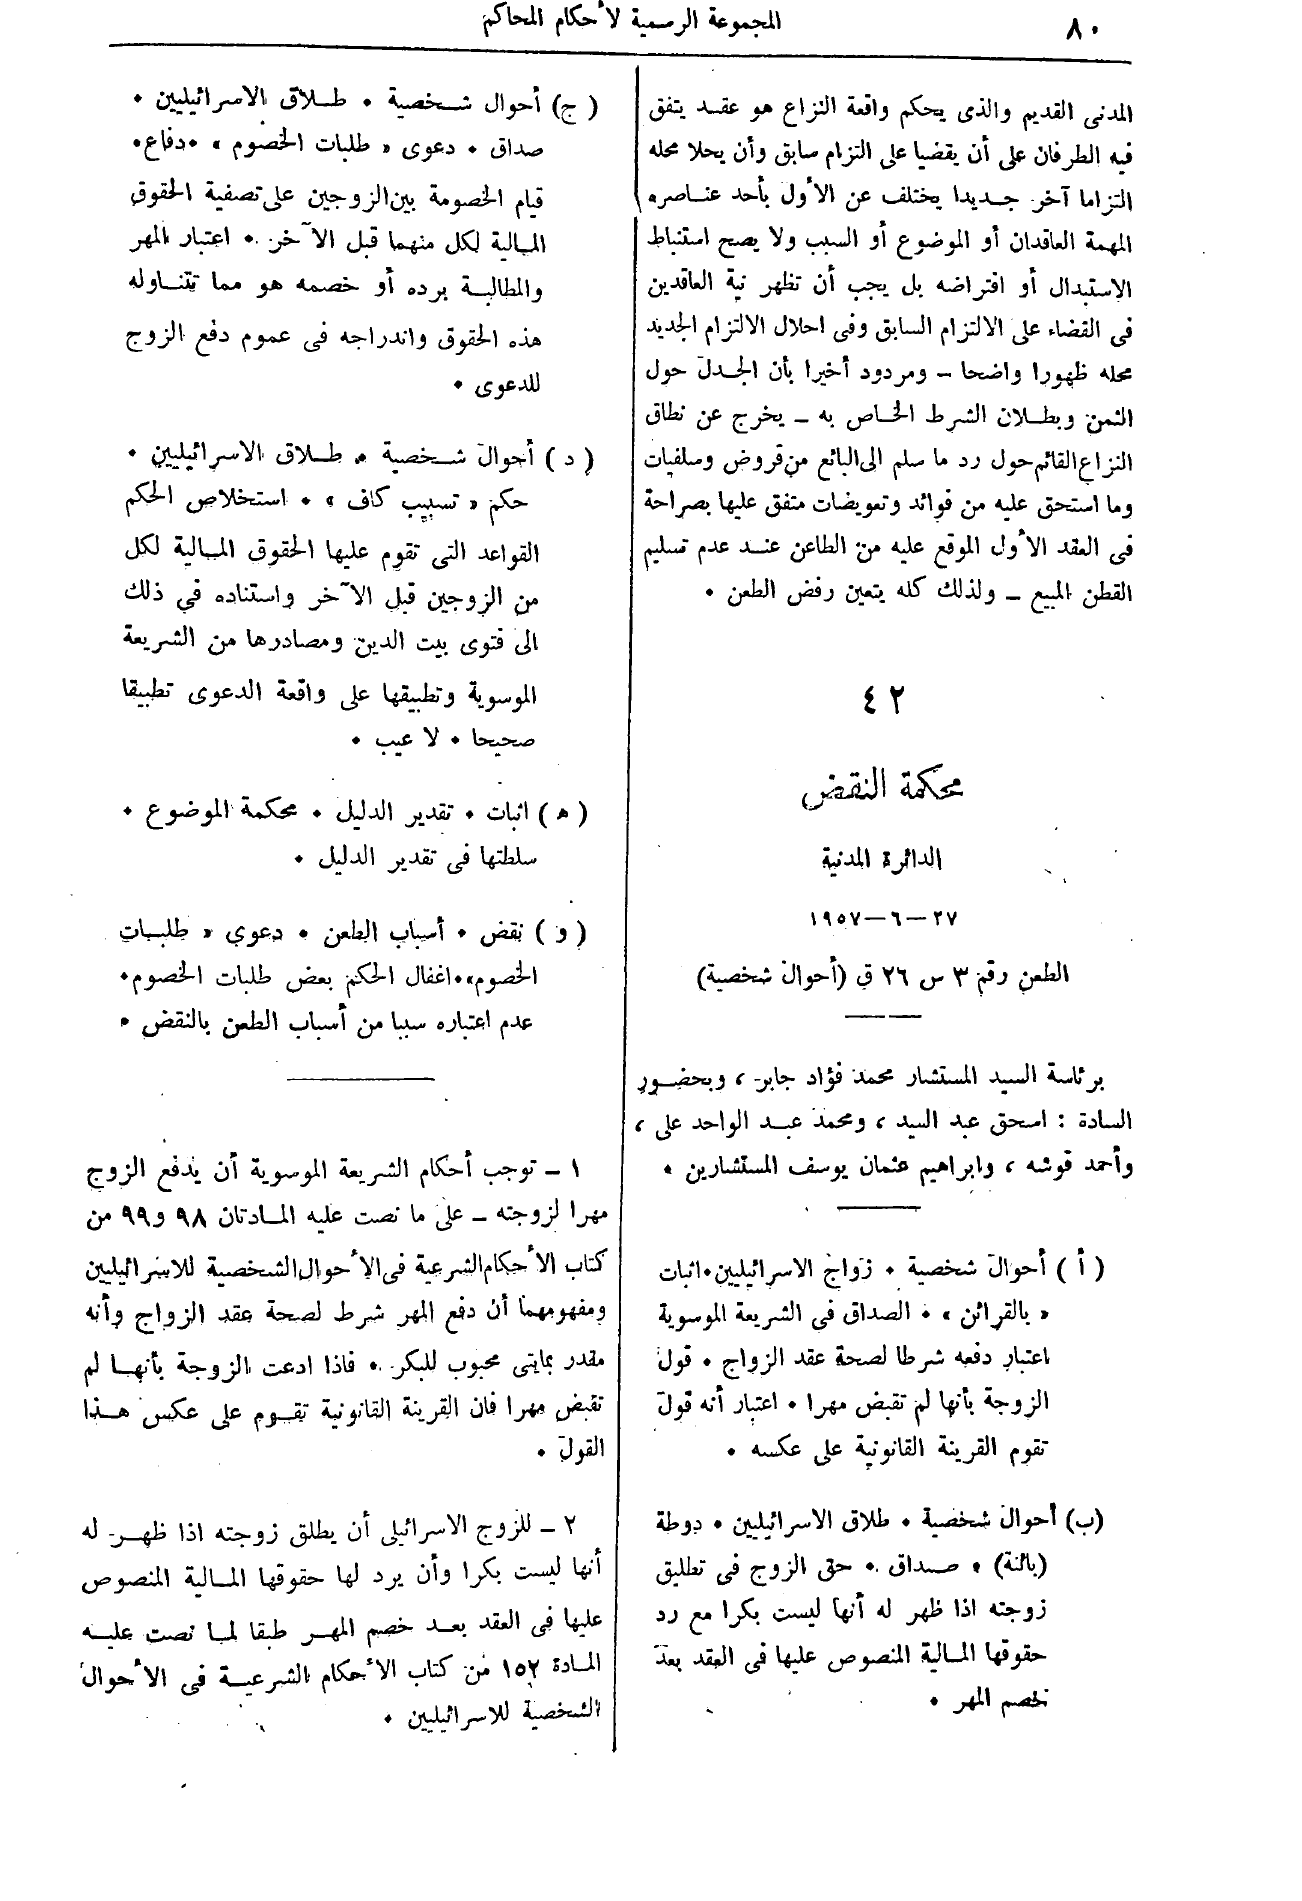 ٨٠
المجموعة الرسمية لأحكام المحاكم
المدنى القديم والذى يحكم واقعة النزاع هو عقـد يتفق
فيه الطرفان على أن يقضيا على التزام سابق وأن يحلا محله
التزاما آخر جـديدا يختلف عن الأول بأحد عنـاصره
المهمة العاقدان أو الموضوع أو السبب ولا يصح استنباط
الاستبدال أو افتراضه بل يجب أن تظهر نية العاقدين
فى القضاء على الالتزام السابق وفى احلال الالتزام الجديد
محله ظهورا واضحا – ومردود أخيرا بأن الجدل حول
الثمن وبطلان الشرط الخاص به – يخرج عن نطاق
النزاع القائم حول رد ما سلم الى البائع من قروض وسلفيات
وما استحق عليه من فوائد وتعويضات متفق عليها بصراحة
فى العقد الأول الموقع عليه من الطاعن عنـد عدم تسليم
القطن المبيع – ولذلك كله يتعين رفض الطعن ٠
٤٢
محكمة النقض
الدائرة المدنية
٢٧–٦–١٩٥٧
الطعن رقم ٣ س ٢٦ ق (أحوال شخصية)
برئاسة السيد المستشار محمد فؤاد جابر ، وبحضـور
السادة : اسحق عبد السيد ، ومحمد عبـد الواحد على ،
وأحمد قوشه ، وابراهيم عثمان يوسف المستشارين ٠
( أ ) أحوال شخصية ٠ زواج الاسرائيليين٠اثبات
« بالقرائن » ٠ الصداق فى الشريعة الموسوية
اعتبار دفعه شرطا لصحة عقد الزواج ٠ قول
الزوجة بأنها لم تقبض مهرا ٠ اعتبار أنه قول
تقوم القرينة القانونية على عكسه ٠
(ب) أحوال شخصية ٠ طلاق الاسرائيليين ٠ دوطة
(بائنة) ٠ صـداق ٠ حق الزوج فى تطليق
زوجته اذا ظهر له أنها ليست بكرا مع رد
حقوقها المـالية المنصوص عليها فى العقد بعد
خصم المهر ٠
( ج) أحوال شـخصية ٠ طـلاق الاسرائيليين ٠
صداق ٠ دعوى « طلبات الخصوم » ٠دفاع٠
قيام الخصومة بين الزوجين على تصفية الحقوق
المـالية لكل منهما قبل الآخر ٠ اعتبار المهر
والمطالبـة برده أو خصمه هو مما تتنـاوله
هذه الحقوق واندراجه فى عموم دفع الزوج
للدعوى ٠
( د ) أحوال شـخصية ٠ طـلاق الاسرائيليين ٠
حكم « تسبيب كاف » ٠ استخلاص الحكم
القواعد التى تقوم عليها الحقوق المـالية لكل
من الزوجين قبل الآخر واستناده في ذلك
الى فتوى بيت الدين ومصادرها من الشريعة
الموسوية وتطبيقها على واقعة الدعوى تطبيقا
صحيحا ٠ لا عيب ٠
( ﻫ ) اثبات ٠ تقدير الدليل ٠ محكمة الموضوع ٠
سلطتها فى تقدير الدليل ٠
( و ) نقض ٠ أسباب الطعن ٠ دعوى « طلبـات
الخصوم»٠اغفال الحكم بعض طلبات الخصوم٠
عدم اعتباره سببا من أسباب الطعن بالنقض ٠
١ – توجب أحكام الشريعة الموسوية أن يدفع الزوج
مهرا لزوجته – على ما نصت عليه المـادتان ٩٨ و٩٩ من
كتاب الأحكام الشرعية فى الأحوال الشخصية للاسرائيليين
ومفهومهما أن دفع المهر شرط لصحة عقد الزواج وأنه
مقدر بمايتى محبوب للبكر ٠ فاذا ادعت الزوجة بأنهـا لم
تقبض مهرا فان القرينة القانونية تقـوم على عكس هـذا
القول ٠
٢ – للزوج الاسرائيلى أن يطلق زوجته اذا ظهـر له
أنها ليست بكرا وأن يرد لها حقوقها المـالية المنصوص
عليها فى العقد بعـد خصم المهـر طبقا لمـا نصت عليـه
المـادة ١٥٢ من كتاب الأحكام الشرعيـة فى الأحوال
الشخصية للاسرائيليين ٠